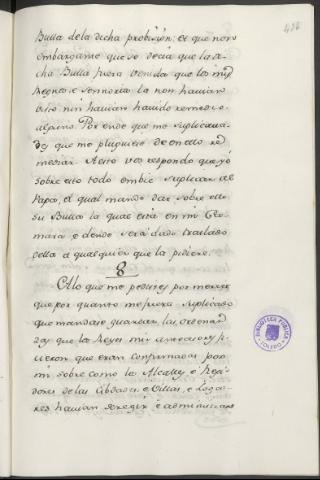 Bulla dela dicha probision. Et que non
embargante que se decia que la di-
cha Bulla fuera venida que los mis
Regnos e sennorios la non havian
visto nin havian havido remedio
alguno. Por ende que me suplicava-
des que me pluguiese de en ello re
mediar. A esto vos respondo que yó
sobre esto todo embie suplicar al
Papa, el qual mando dar sobre ello
su Bulla la qual está en mi Ca-
mara é dende será dado traslado
della a qualquier que la pidiere.
8
Otto que me pedistes por merced
que por quanto me fuera suplicado
que mandase guardar las ordenan
zas que los Reyes mis antecesores fi-
cieron que eran confirmadas por
mi sobre como los Alcalles é Regi-
dores de las Cibdades e Villas e Loga-
res havian de regir é administrar
BIBLIOTECA PUBLICA
TOLEDO